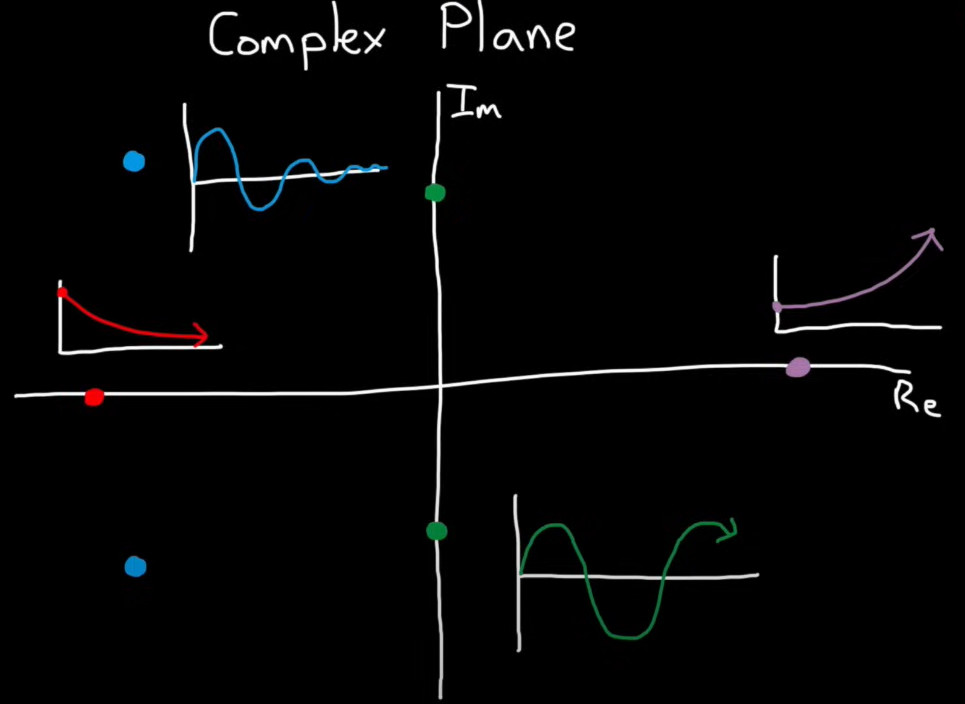 Complex Plane
Im
Re